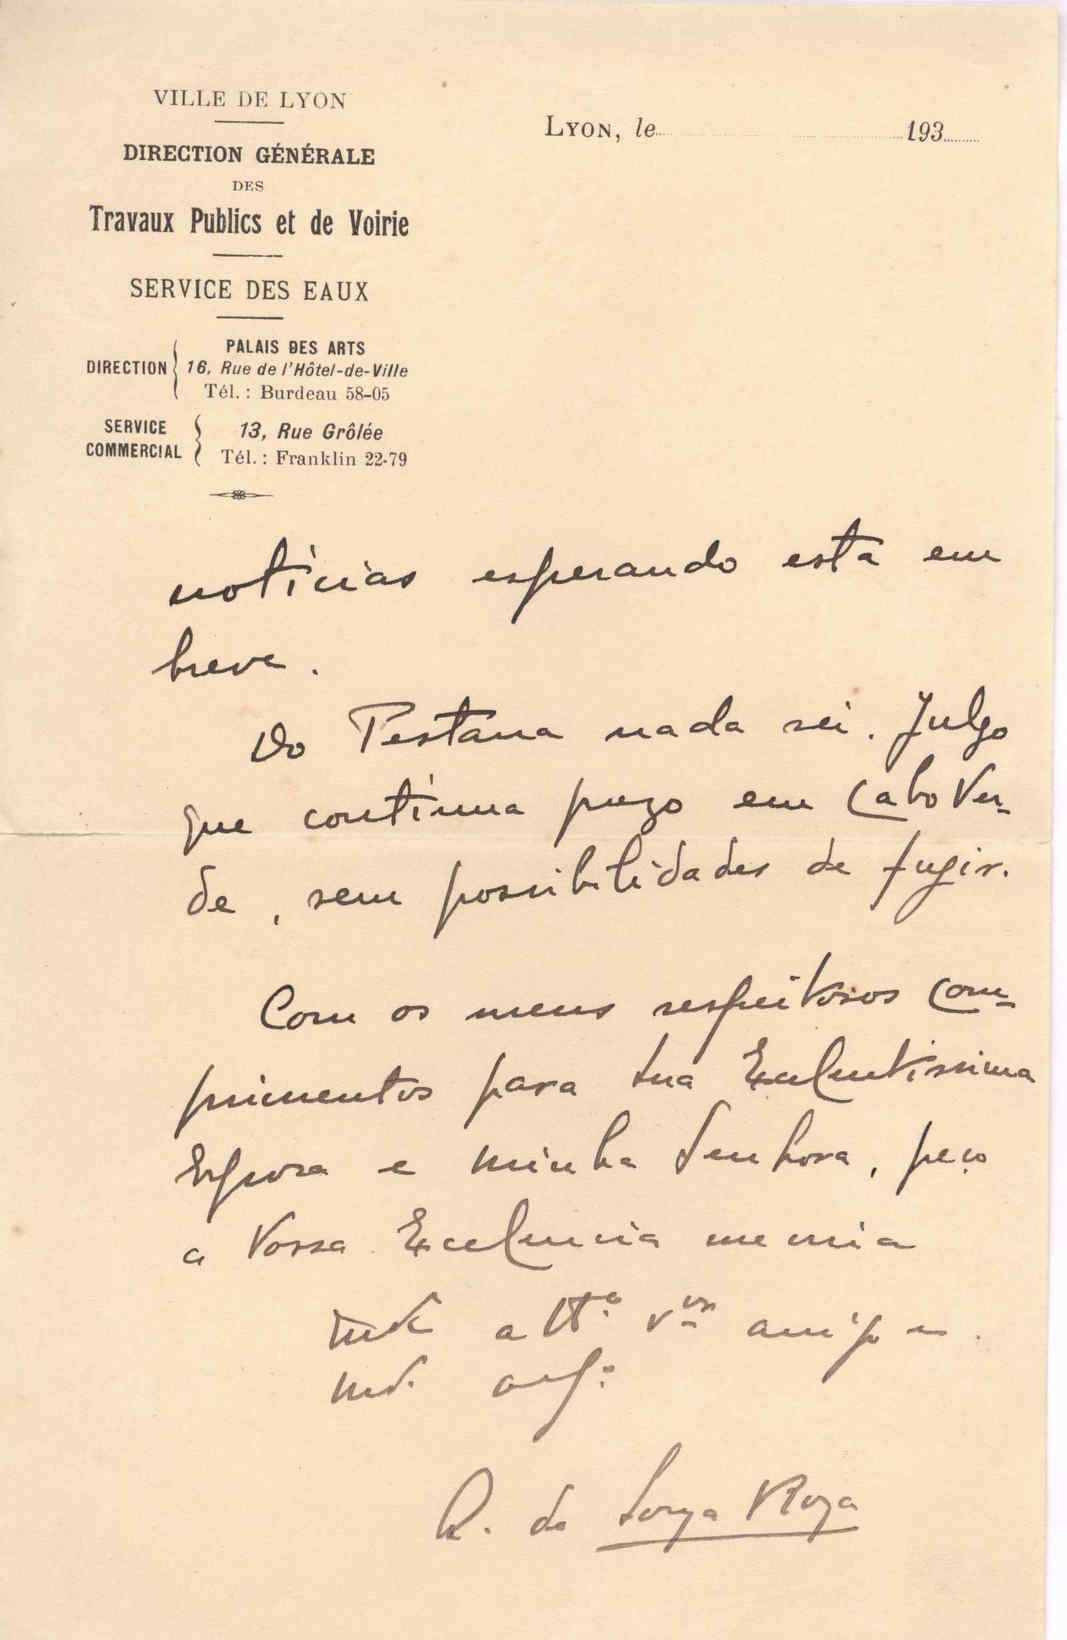 VILLE DE LYON
DIRECTION GÉNÉRALE
DES
Travaux Publics et de Voirie
SERVICE DES EAUX
DIRECTION
PALAIS DES ARTS
16, Rue de l'Hôtel-de-Ville
Tél. : Burdeau 58-05
SERVICE
COMMERCIAL
13, Rue Grôlée
Tél. : Franklin 22-79
LYON, le 193
notícias esperando esta em
breve.
Do Pestana nada sei. Julgo
que contínua prezo em Cabo Ver-
de, sem possibilidades de fugir.
Com os meus respeitosos com-
primentos para Sua Excelentissima
Esposa e minha Senhora, peço
a Vossa Excelencia me creia
att.º v.or amigo
R. de Souza Roza